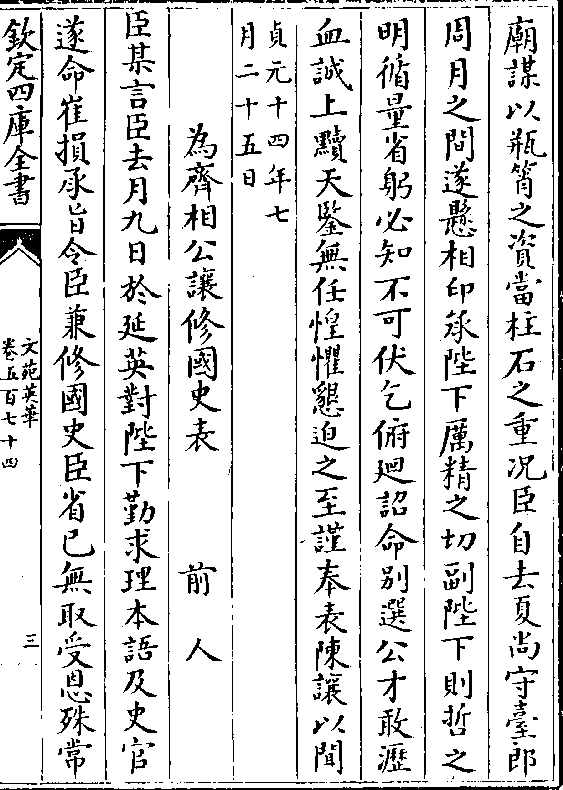 廟謀以瓶筲之資當柱石之重况臣自去夏尚守臺郎
周月之間遂懸相印承陛下厲精之切副陛下則哲之
明循量省躬必知不可伏乞俯廻詔命别選公才敢瀝
血誠上黷天鑒無任惶懼懇迫之至謹奉表陳讓以聞
貞元十四年七
月二十五日
為齊相公讓修國史表 前人
臣某言臣去月九日於延英對陛下勤求理本語及史官
遂命崔損承旨令臣兼修國史臣省已無取受恩殊常
欽定四庫全書
文苑英華
卷五百七十四
三